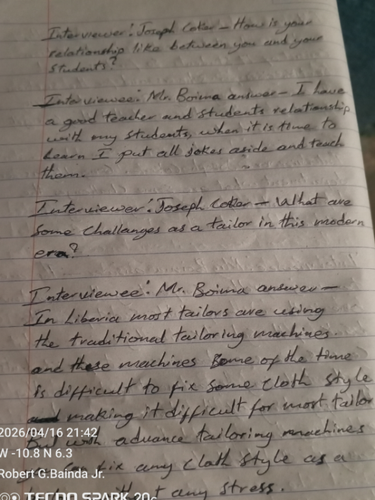 Interviewer: Joseph Coker - How is your
relationship like between you and your
students?
Interviewee: Mr. Boima answer - I have
a good teacher and students relationship
with my students, when it is time to
learn I put all jokes aside and teach
them.
Interviewer: Joseph Coker - What are
some challanges as a tailor in this modern
era?
Interviewee: Mr. Boima answer -
In Liberia most tailors are using
the traditional tailoring machines
and these machines some of the time
is difficult to fix some cloth style
and making it difficult for most tailor
with advance tailoring machines
fix any cloth style as a
any stress.
2026/04/16 21:42
W -10.8 N 6.3
Robert G.Bainda Jr.
TECNO SPARK 20c